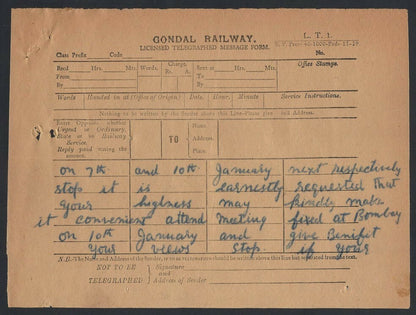 GONDAL RAILWAY.
LICENSED TELEGRAPHED MESSAGE FORM.
L. T. 1.
Class Prefix Code
No.
Recd Hrs. Mts.
From
By
Words.
Charge.
Rs. A.
Sent at Hrs. Mts.
To
By
Office Stamp.
Words Handed in at (Office of Origin) Date. Hour. Minute Service Instructions.
Nothing to be written by the Sender above this Line—Please fill full Address
Enter Opposite whether
Urgent or Ordinary.
State or as Railway
Service.
Reply paid stating the
amount.
TO
Name.
Address.
on 7th and 10th January next respectively
stop it is earnestly requested that
your highness may kindly make
it convenient attend meeting fixed at Bombay
on 10th January and give Benifit
your views stop if your
N.B.—The Name and Address of the Sender, if to be telegraphed should be written above this line
NOT TO BE
TELEGRAPHED
Signature
and
Address of Sender